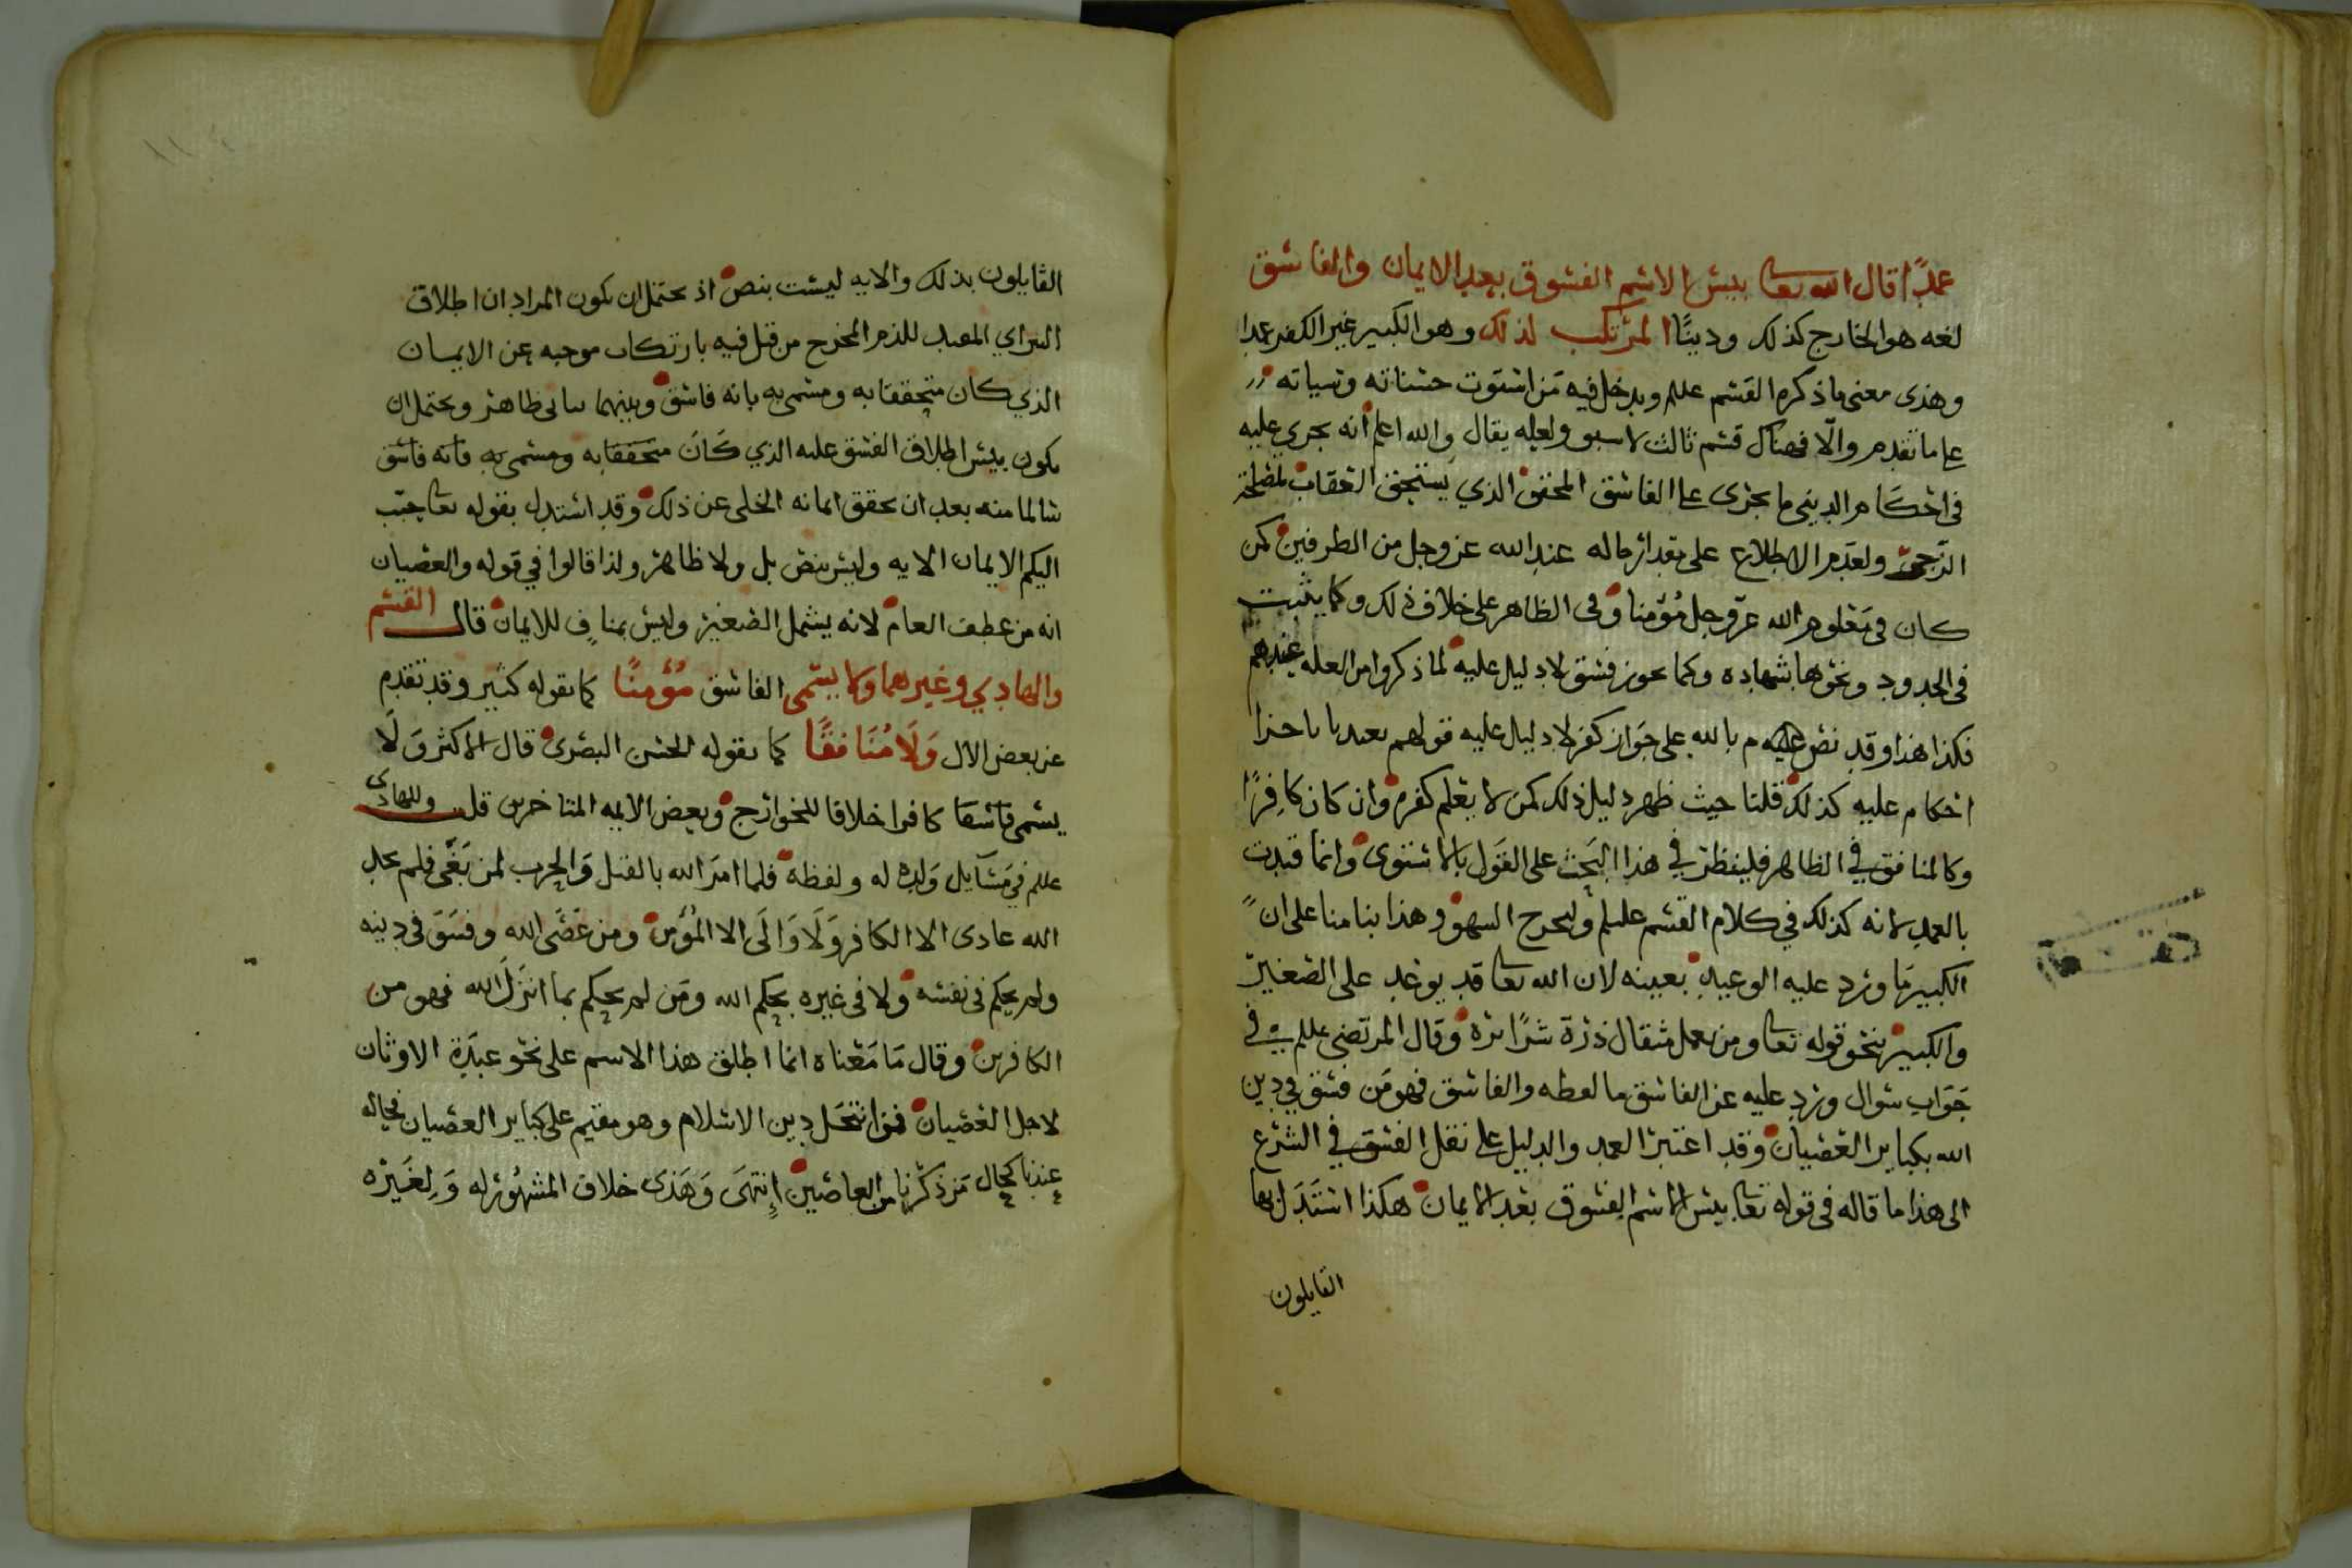 عمدًا قال الله تعالى بيس الاسم الفسوق بعد الايمان والفاسق
لغه هو الخارج كذلك ودينًا المرتكب لذلك وهو الكبير غير الكفر عمدا
وهذى معنى ما ذكره القسم عللم ويدخل فيه من استوت حسناته وسياته
على ما تقدم والّا فهناك قسم ثالث لاسبو ولعله يقال والله اعلم انه يجري عليه
فى احكام الدينى ما يجرى على الفاسق المحقق الذي يستحق العقاب لمصلحة
الزجر ولعدم الاطلاع على مقدار حاله عند الله عز وجل من الطرفين كمن
كان فى معلوم الله عز وجل مُؤمنا وفى الظاهر على خلاف ذلك وكما يثبت
فى الحدود ونحوها بشهاده وكما يجوز فسق لا دليل عليه لما ذكروا من العله عندهم
فكذا هذا وقد نص م بالله على جَواز كفر لا دليل عليه قولهم
احكام عليه كذلك قلنا حيث ظهر دليل ذلك كمن لا يعلم كفره وان كان كافِرًا
وكالمنافق في الظاهر فلينظر في هذا البَحث على القَول بالاستوى وانما قيدت
بالعمد لانه كذلك في كلام القسم عللم وليخرج السهو وهذا بنا منا على ان
الكبير مَا ورد عليه الوعيد بعينه لان الله تعالى قد يوعد على الصغير
والكبير بنحو قوله تعالى ومن يعمل مثقال ذرة شرًا يره وقال المرتضى عللم في
جَوَاب سُوال ورد عليه عن الفاسق ما لفظه والفاسق فهو مَن فسق في دين
الله بكباير العصيان وقد اعتبر العمد والدليل على نقل الفسق في الشرع
الى هذا ما قاله فى قوله تعالى بيس الاسم الفسوق بعد الايمان هكذا استَدَل بها
القايلون
القايلون بذلك والايه ليست بنص اذ يحتمل ان يكون المراد ان اطلاق
المعيد للذم المخرج من قبل فيه بارتكاب موجبه عن الايمان
الذي كان متحققا به ومسمى به بانه فاسق وبينهما ظاهر ويحتمل ان
يكون بيس اطلاق الفسق عليه الذي كَانَ متحققا به ومسمى به بانه فاسق
سالما منه بعد ان تحقق ايمانه الخلى عن ذلك وقد استدل بقوله تعالى حبّب
اليكم الايمان الايه وليس بنص بل ولا ظاهر ولذا قالوا في قوله والعصيان
انه من عطف العام لانه يشمل الصغير وليس بمنافٍ للايمان قال القسم
والهادي وغيرهما ولا يسمى الفاسق مُؤمنًا كما يقوله كثير وقد تقدم
عن بعض الال وَلَا مُنَافقًا كما يقوله الحسن البصرى قال الاكثر وَلَا
يسمى فاسقا كافرا خلافا للخوارج وبعض الايمه المتاخرين قلت وللهادى
عللم في مَسَايل وَلده له ولفظه فلما امرَ الله بالقتل وَالحرب لمن بَغَى فلم نجد
الله عادى الا الكافر وَلَا وَالَى الا المُؤمن ومن عَصَى الله وفسَقَ فى دينه
ولم يحكم فى نفسه ولا فى غيره بحكم الله ومَن لم يحكم بما انزَلَ الله فهو من
الكافرين وقال مَا مَعْناه انما اطلق هذا الاسم على نحو عبَدَة الاوثان
لاجل العصيان فمن انتحَل دين الاسلام وهو مقيم على كباير العصيان فحاله
عندنا كحال مَن ذكرنا من العاصين اِنتهَى وَهَذى خلاف المشهُور له وَلِغَيره